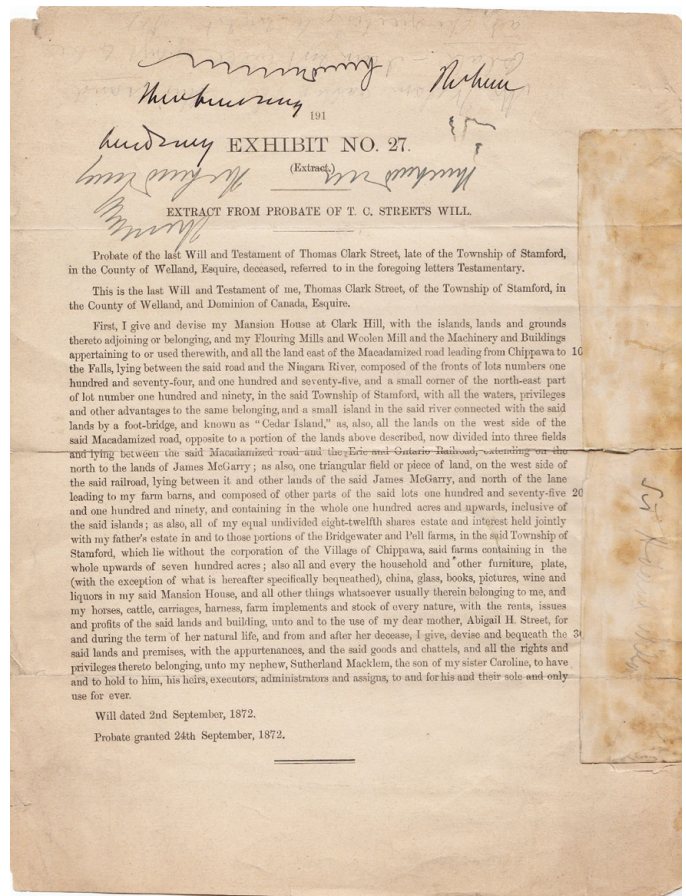 191
EXHIBIT NO. 27.
(Extract.)
EXTRACT FROM PROBATE OF T. C. STREET'S WILL.
Probate of the last Will and Testament of Thomas Clark Street, late of the Township of Stamford,
in the County of Welland, Esquire, deceased, referred to in the foregoing letters Testamentary.
This is the last Will and Testament of me, Thomas Clark Street, of the Township of Stamford, in
the County of Welland, and Dominion of Canada, Esquire.
First, I give and devise my Mansion House at Clark Hill, with the islands, lands and grounds
thereto adjoining or belonging, and my Flouring Mills and Woolen Mill and the Machinery and Buildings
appertaining to or used therewith, and all the land east of the Macadamized road leading from Chippawa to 10
the Falls, lying between the said road and the Niagara River, composed of the fronts of lots numbers one
hundred and seventy-four, and one hundred and seventy-five, and a small corner of the north-east part
of lot number one hundred and ninety, in the said Township of Stamford, with all the waters, privileges
and other advantages to the same belonging, and a small island in the said river connected with the said
lands by a foot-bridge, and known as "Cedar Island," as, also, all the lands on the west side of the
said Macadamized road, opposite to a portion of the lands above described, now divided into three fields
and lying between the said Macadamized road and the Erie and Ontario Railroad, extending on the
north to the lands of James McGarry; as also, one triangular field or piece of land, on the west side of
the said railroad, lying between it and other lands of the said James McGarry, and north of the lane
leading to my farm barns, and composed of other parts of the said lots one hundred and seventy-five 20
and one hundred and ninety, and containing in the whole one hundred acres and upwards, inclusive of
the said islands; as also, all of my equal undivided eight-twelfth shares estate and interest held jointly
with my father's estate in and to those portions of the Bridgewater and Pell farms, in the said Township of
Stamford, which lie without the corporation of the Village of Chippawa, said farms containing in the
whole upwards of seven hundred acres; also all and every the household and other furniture, plate,
(with the exception of what is hereafter specifically bequeathed), china, glass, books, pictures, wine and
liquors in my said Mansion House, and all other things whatsoever usually therein belonging to me, and
my horses, cattle, carriages, harness, farm implements and stock of every nature, with the rents, issues
and profits of the said lands and building, unto and to the use of my dear mother, Abigail H. Street, for
and during the term of her natural life, and from and after her decease, I give, devise and bequeath the 3
said lands and premises, with the appurtenances, and the said goods and chattels, and all the rights and
privileges thereto belonging, unto my nephew, Sutherland Macklem, the son of my sister Caroline, to have
and to hold to him, his heirs, executors, administrators and assigns, to and for his and their sole and only
use for ever.
Will dated 2nd September, 1872.
Probate granted 24th September, 1872.